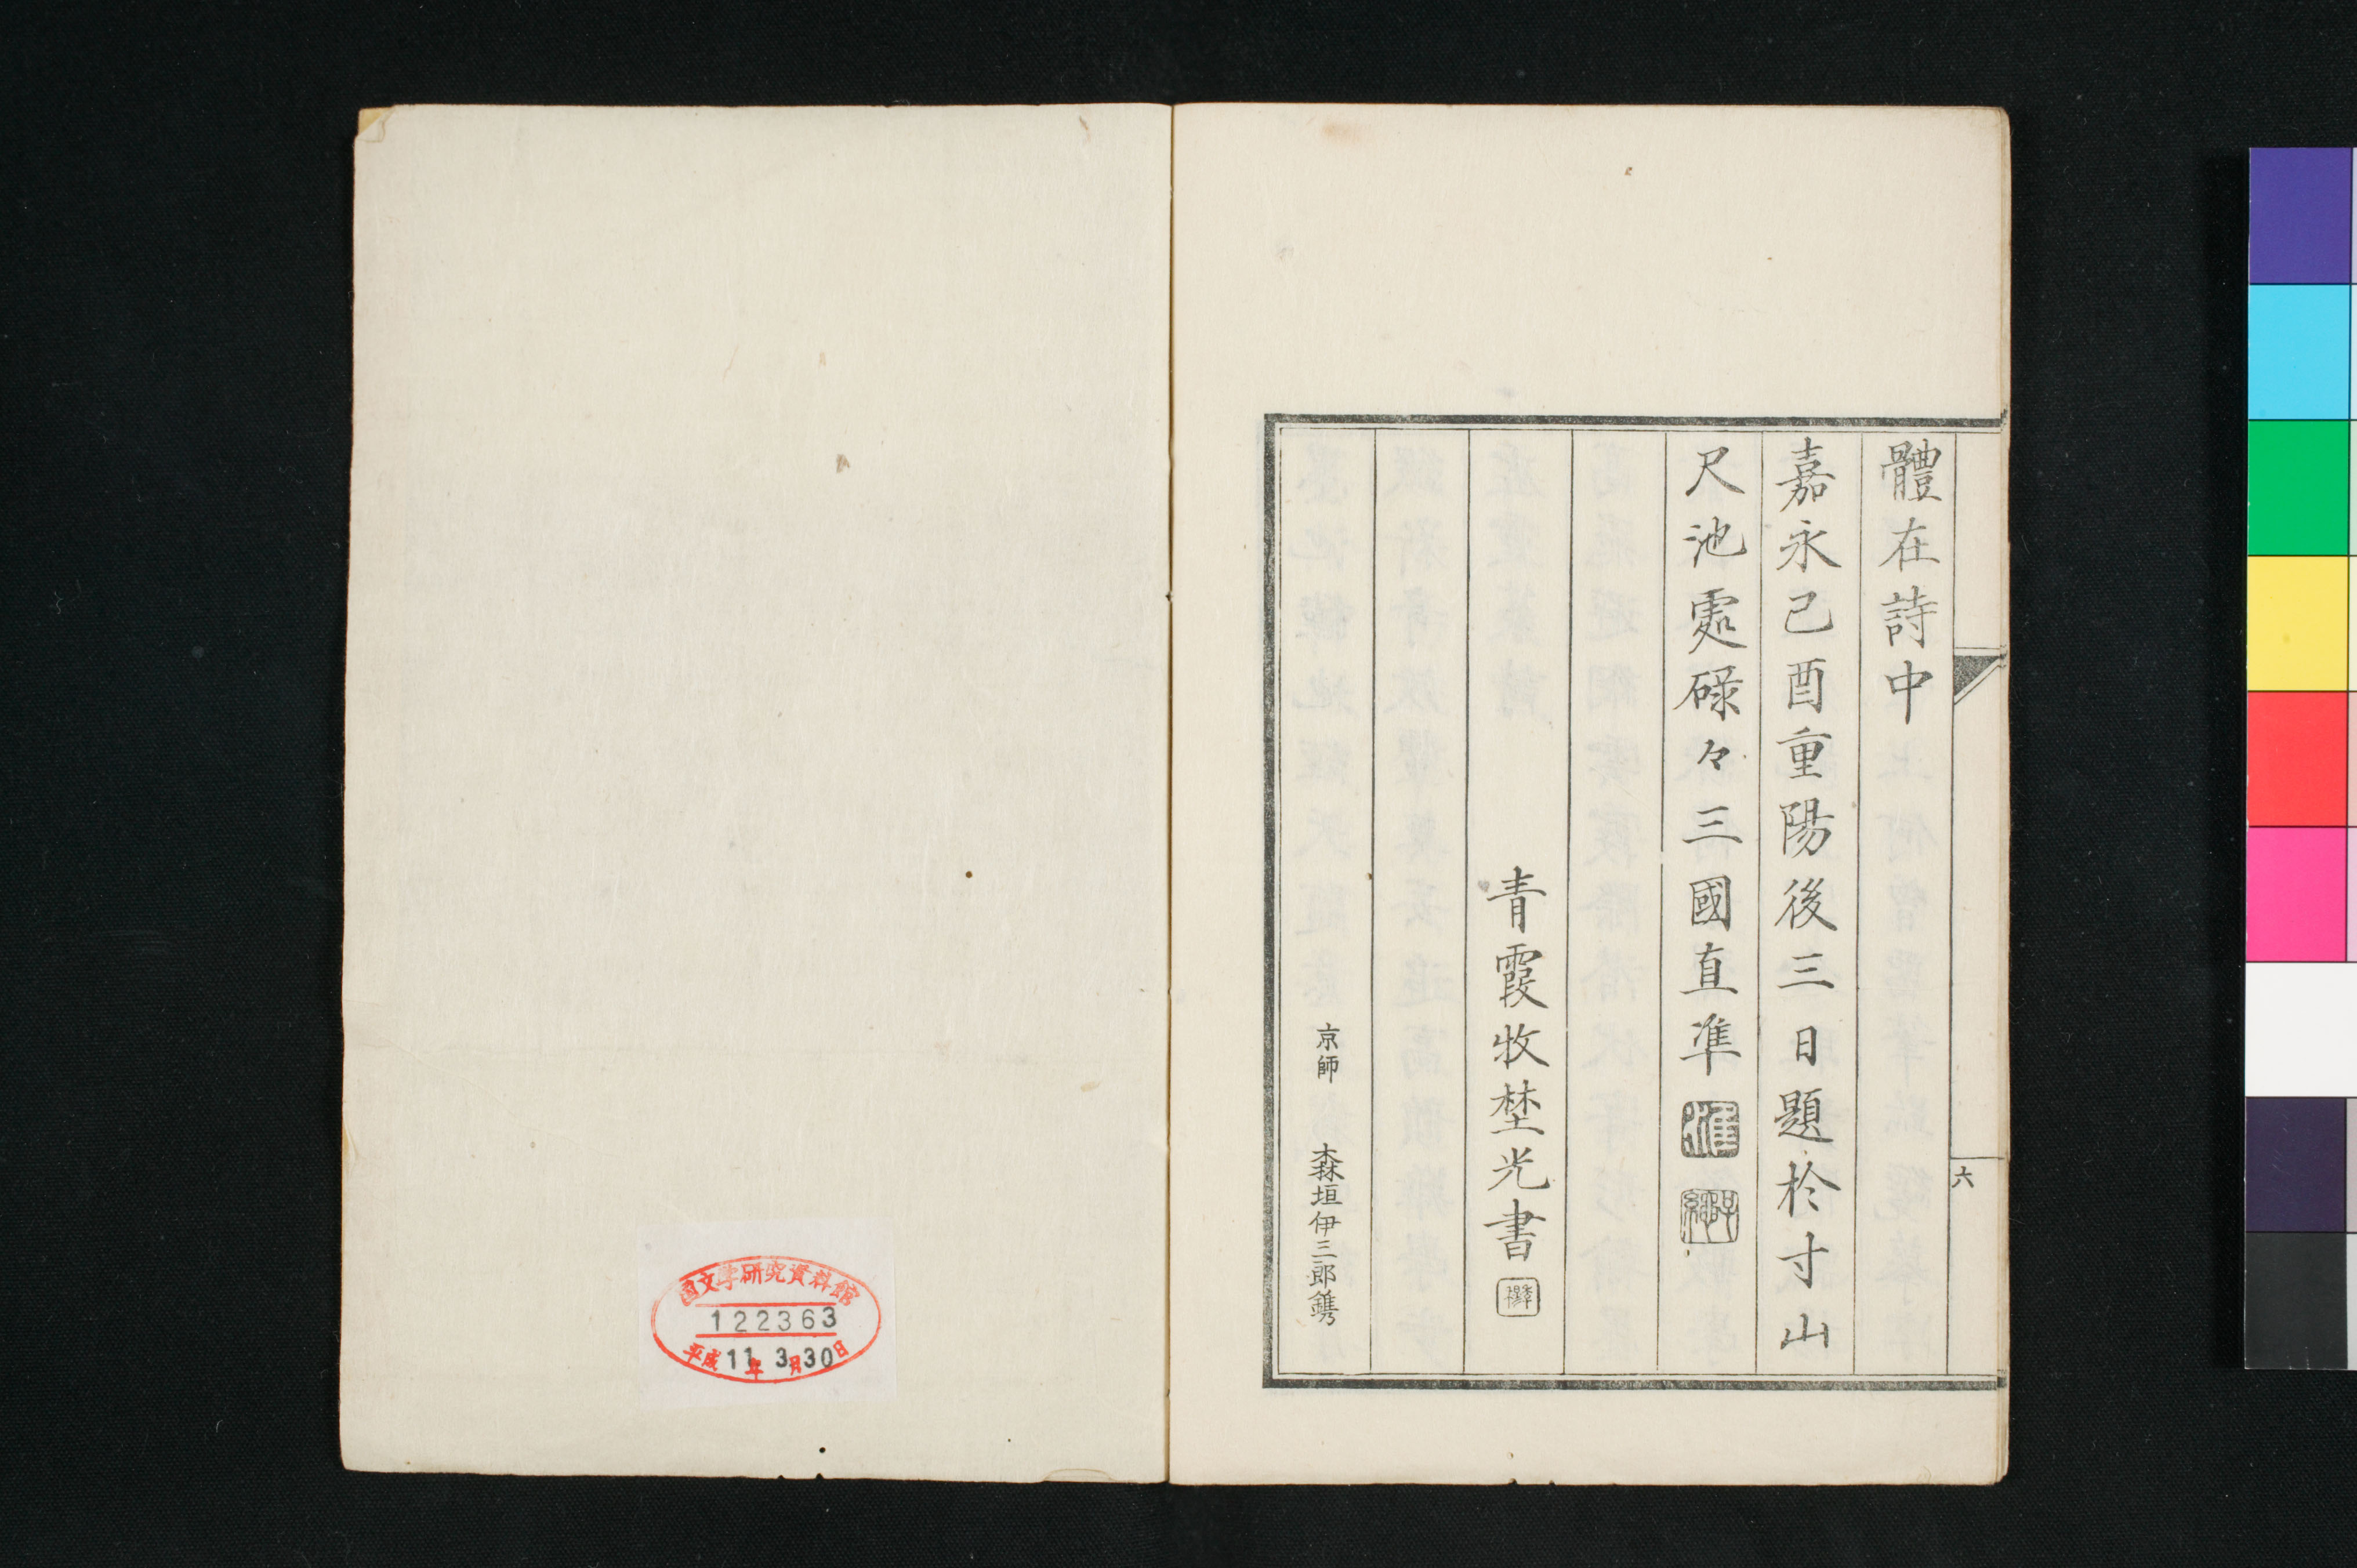 體在詩中
嘉永己酉重陽後三日題於寸山
尺池處碌々三國直準
青霞牧埜光書
京師 森垣伊三郎鐫
六
国文学研究資料館
122363
平成11年3月30日